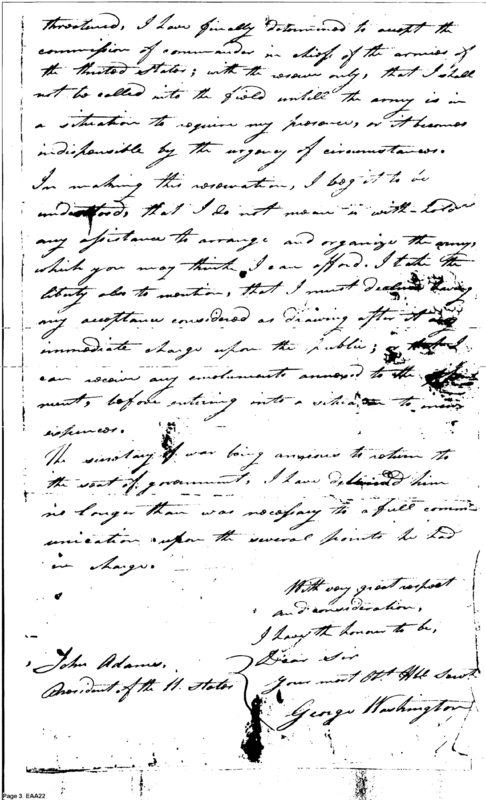 threatened, I have finally determined to accept the
commission of commander in chief of the armies of
the United States; with the reserve only, that I shall
not be called into the field untill the army is in
a situation to require my presence, or it becomes
indispensible by the urgency of circumstances.
In making this reservation, I beg it to be
understood, that I do not mean to with-hold
any assistance to arrange and organize the army,
which you may think I can afford. I take the
liberty also to mention, that I must decline having
my acceptance considered as drawing after it any
immediate charge upon the public; or that I
can receive any emoluments annexed to the
ment, before entering into a situation to incur
expences.
The secretary of war being anxious to return to
the seat of government, I have detained him
no longer than was necessary to a full comm-
unication upon the several points he had
in charge.
With very great respect
and consideration,
I have the honour to be,
Dear Sir
Your most Obt Hble Servt
George Washington
John Adams,
President of the U. States
Page 3 EAA22